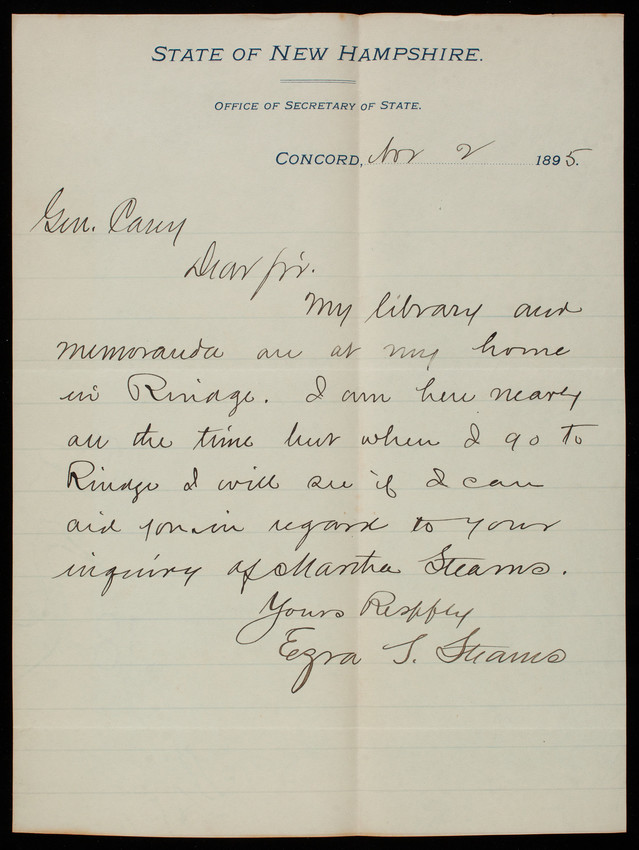 STATE OF NEW HAMPSHIRE.
OFFICE OF SECRETARY OF STATE.
CONCORD, Nov 2 1895.
Gen. Casey
Dear Sir.
My library and
memoranda are at my home
in Rindge. I am here nearly
all the time but when I go to
Rindge I will see if I can
aid you in regard to your
inquiry of Martha Stearns.
Yours Respfly
Ezra S. Stearns